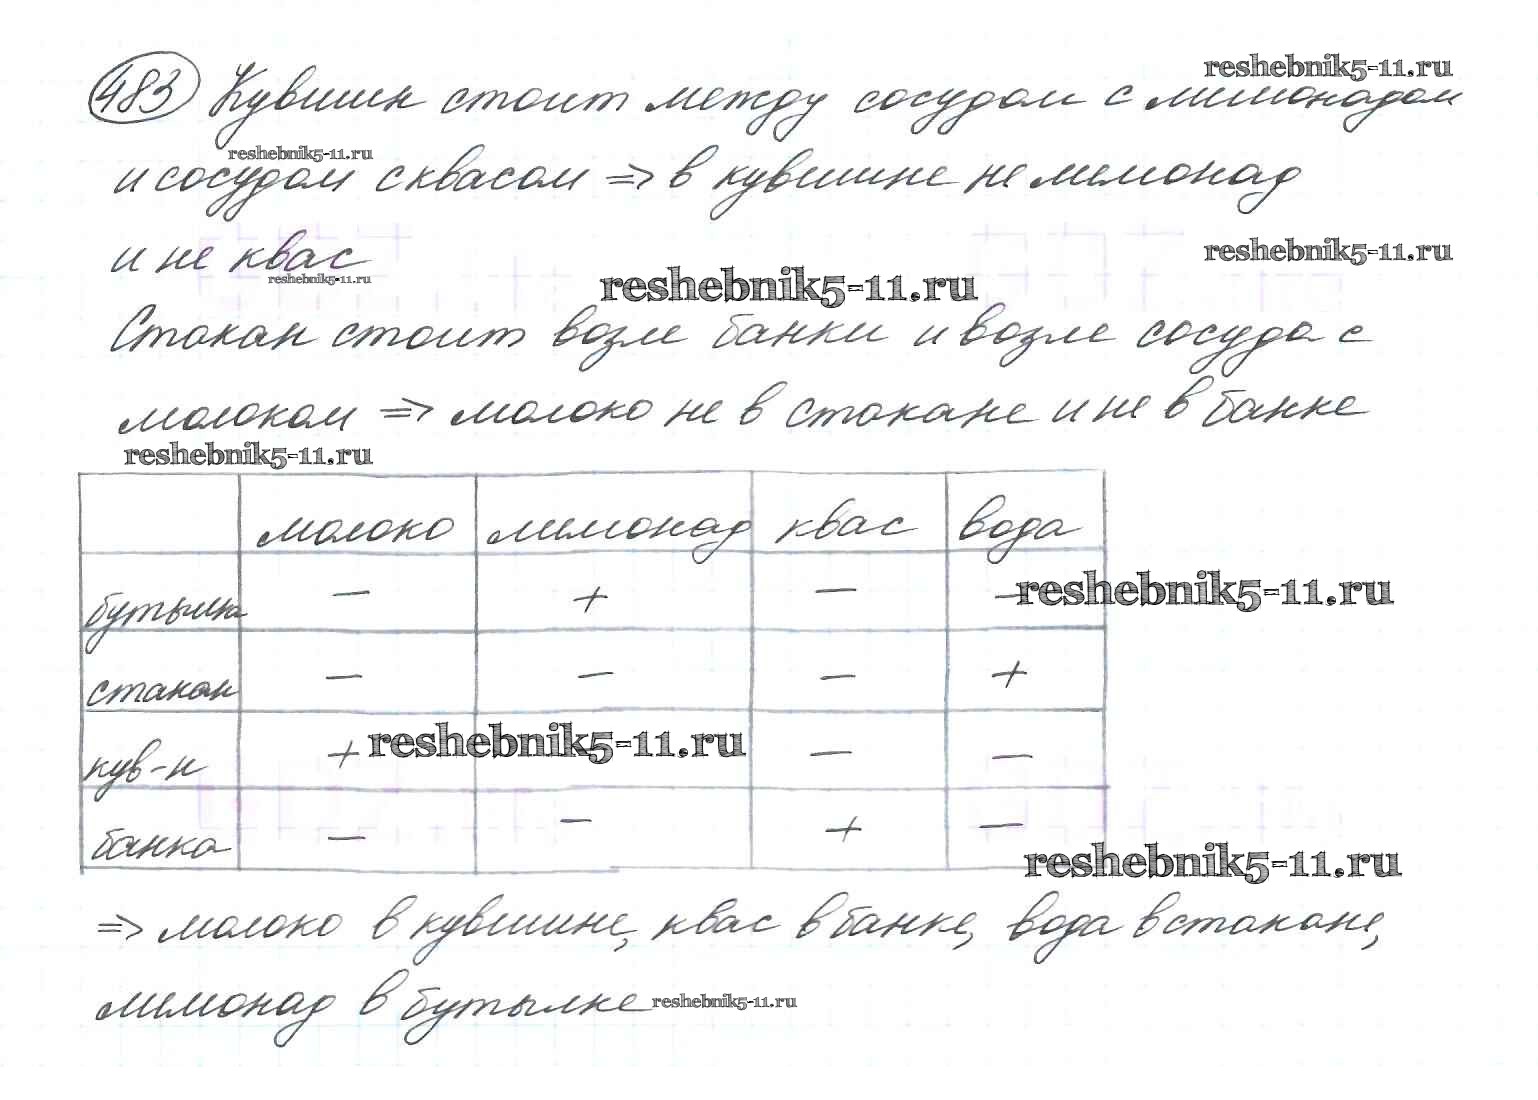 483 Кувшин стоит между сосудом с лимонадом
reshebnik5-11.ru
reshebnik5-11.ru
и сосудом с квасом => в кувшине не лимонад
и не квас
reshebnik5-11.ru
reshebnik5-11.ru
reshebnik5-11.ru
Стакан стоит возле банки и возле сосуда с
молоком => молоко не в стакане и не в банке
reshebnik5-11.ru
молоко лимонад квас вода
бутылка — + — —
reshebnik5-11.ru
стакан — — — +
кув-н + — —
reshebnik5-11.ru
банка — — + —
reshebnik5-11.ru
=> молоко в кувшине, квас в банке, вода в стакане,
лимонад в бутылке
reshebnik5-11.ru